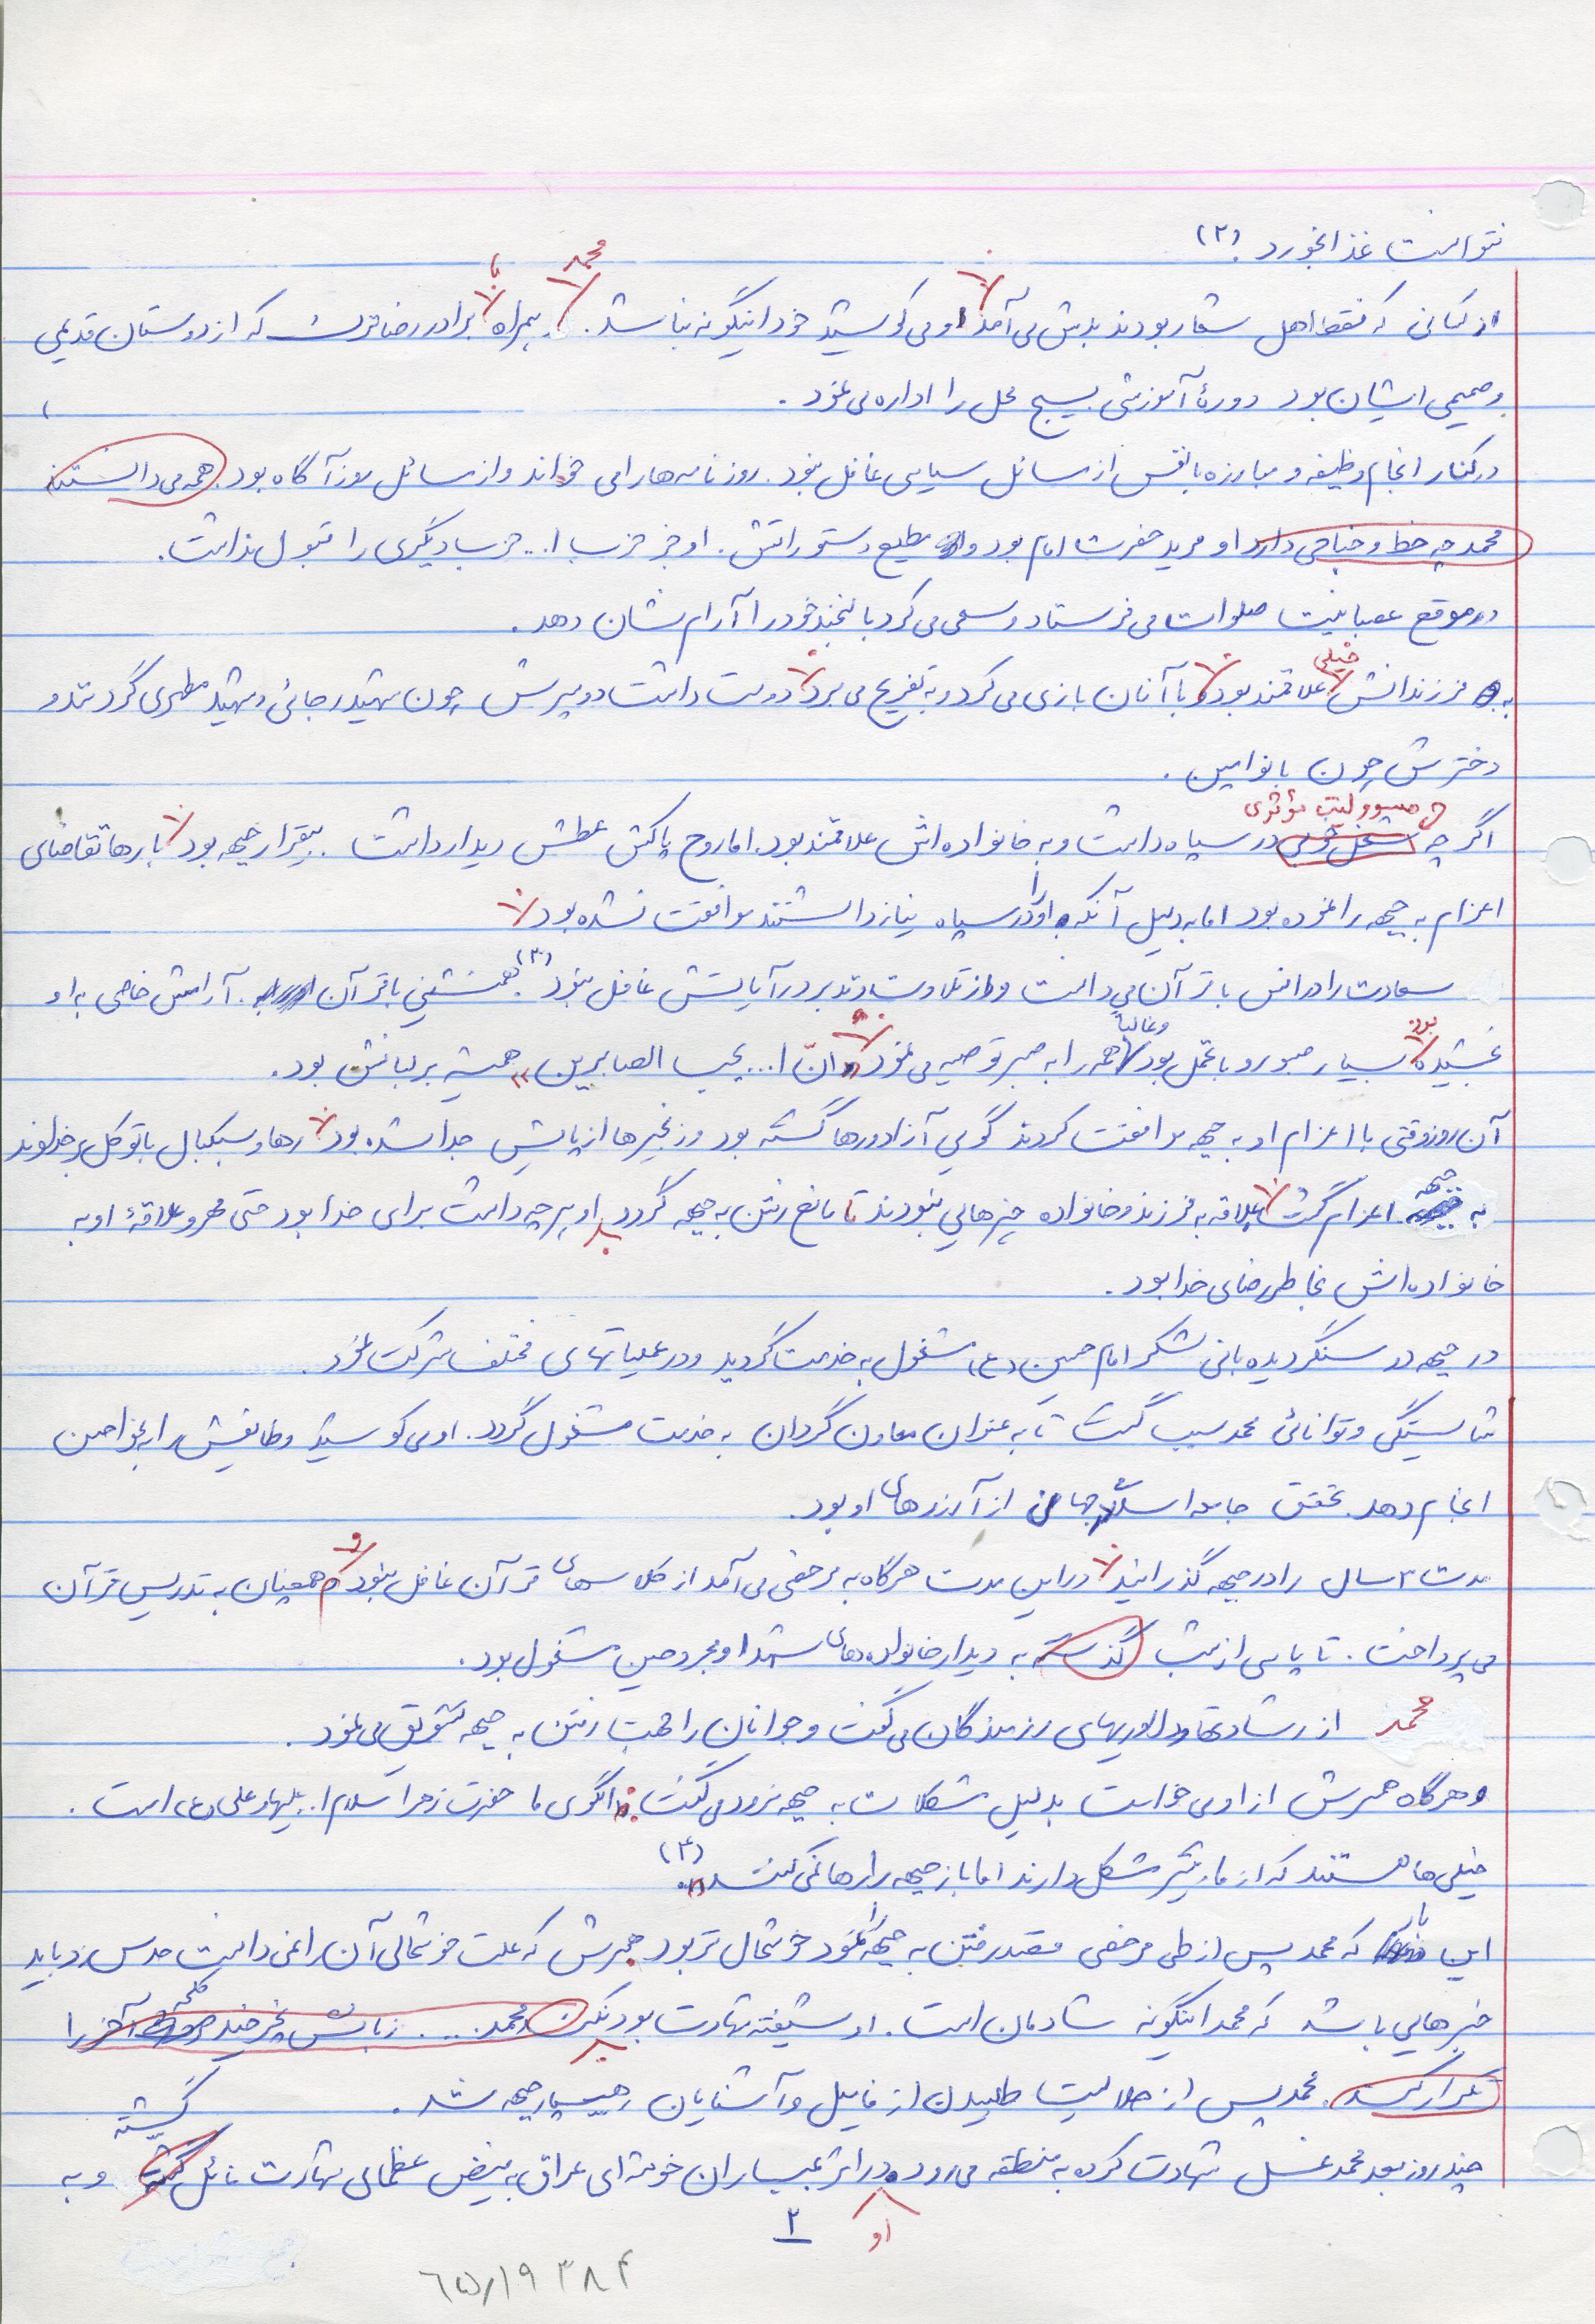 نتوانست غذا بخورد. (۲)
از کسانی که فقط اهل شعار بودند بدش می‌آمد. او می‌کوشید خود اینگونه نباشد. محمد به همراه با برادر رضا ترک که از دوستان قدیمی
و صمیمی ایشان بود دورۀ آموزشی بسیج محل را اداره می‌نمود.
در کنار انجام وظیفه و مبارزه با نفس از مسائل سیاسی غافل نبود. روزنامه‌ها را می خواند و از مسائل روز آگاه بود. همه می‌دانستند
محمد چه خط و جناحی دارد او مرید حضرت امام بود و مطیع دستوراتش. او جز حزب ا... حزب دیگری را قبول نداشت.
در موقع عصبانیت صلوات می‌فرستاد و سعی می‌کرد با لبخند خود را آرام نشان دهد.
به فرزندانش خیلی علاقمند بود. با آنان بازی می‌کرد و به تفریح می‌برد. دوست داشت دو پسرش چون شهید رجائی و شهید مطهری گردند و
دخترش چون بانو امین.
اگر چه مسوولیت مؤثری در سپاه داشت و به خانواده‌اش علاقمند بود. اما روح پاکش عطش دیدار داشت. بیقرار جبهه بود. بارها تقاضای
اعزام به جبهه را نموده بود اما به دلیل آنکه او را در سپاه نیاز داشتند موافقت نشده بود.
سعادت را در انس با قرآن می‌دانست و از تلاوت و تدبر در آیاتش غافل نبود. (۳) همنشینی با قرآن آرامش خاصی به او
بخشیده بود. بسیار صبور و با تحمل بود و غالباً همه را به صبر توصیه می‌نمود. و «انّ ا... یحب الصابرین» همیشه بر لبانش بود.
آن روز وقتی با اعزام او به جبهه موافقت کردند گویی آزاد و رها گشته بود و زنجیرها از پایش جدا شده بود. رها و سبکبال با توکل بر خداوند
به جبهه اعزام گشت. علاقه به فرزند و خانواده چیزهایی نبودند تا مانع رفتن به جبهه گردد. او هر چه داشت برای خدا بود حتی مهر و علاقۀ او به
خانواده‌اش بخاطر رضای خدا بود.
در جبهه در سنگر دیده بانی لشکر امام حسین (ع) مشغول به خدمت گردید و در عملیاتهای مختلف شرکت نمود.
شایستگی و توانائی محمد سبب گشت تا به عنوان معاون گردان به خدمت مشغول گردد. او می‌کوشید وظائفش را به نحو احسن
انجام دهد. تحقق جامعه اسلامی جهانی از آرزوهای او بود.
مدت ۳ سال را در جبهه گذرانید. در این مدت هر گاه به مرخصی می‌آمد از کلاسهای قرآن غافل نبود و همچنان به تدریس قرآن
می‌پرداخت. تا پاسی از شب گذشته به دیدار خانواده‌های شهدا و مجروحین مشغول بود.
محمد از رشادتها و دلاوریهای رزمندگان می‌گفت و جوانان را جهت رفتن به جبهه تشویق می‌نمود.
و هر گاه همسرش از او می‌خواست بدلیل مشکلات به جبهه نرود می‌گفت: «الگوی ما حضرت زهرا سلام ا... علیها و علی (ع) است.
خیلی‌ها هستند که از ما بیشتر مشکل دارند اما باز جبهه را رها نمی‌کنند.» (۴)
این بار که محمد پس از طی مرخصی قصد رفتن به جبهه را نمود خوشحال تر بود. همسرش که علت خوشحالی آن را نمی‌دانست حدس زد باید
خبرهایی باشد که محمد اینگونه شادمان است. او شیفته شهادت بود. نکند محمد .... زبانش نچرخید کلمه آخر را
تکرار کند. محمد پس از حلالیت طلبیدن از فامیل و آشنایان رهسپار جبهه شد.
چند روز بعد محمد غسل شهادت کرده به منطقه می‌رود. او در اثر بمباران خوشه‌ای عراق به فیض عظمای شهادت نائل گشته و به
۲
۶۵/۱۹ ۳۸۴